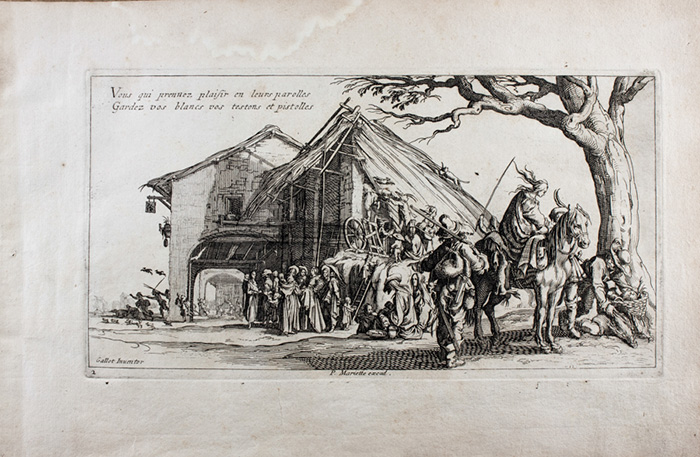 Vous qui prennez plaisir en leurs parolles
Gardez vos blancs vos testons et pistolles
Callot Inventor
2
P. Mariette excud.